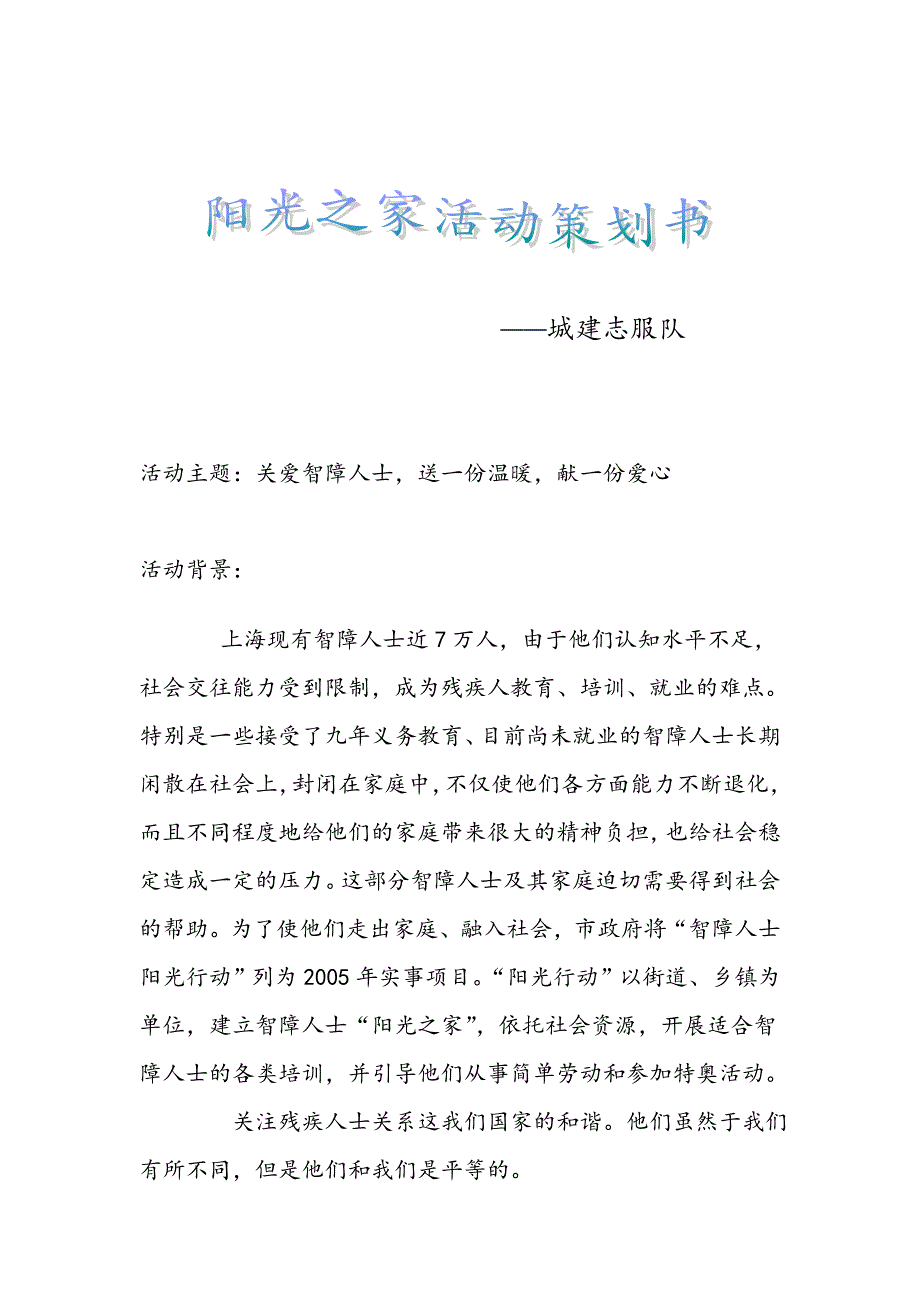 阳光之家活动策划书
——城建志服队
活动主题：关爱智障人士，送一份温暖，献一份爱心
活动背景：
上海现有智障人士近7万人，由于他们认知水平不足，
社会交往能力受到限制，成为残疾人教育、培训、就业的难点。
特别是一些接受了九年义务教育、目前尚未就业的智障人士长期
闲散在社会上，封闭在家庭中，不仅使他们各方面能力不断退化，
而且不同程度地给他们的家庭带来很大的精神负担，也给社会稳
定造成一定的压力。这部分智障人士及其家庭迫切需要得到社会
的帮助。为了使他们走出家庭、融入社会，市政府将“智障人士
阳光行动”列为2005年实事项目。“阳光行动”以街道、乡镇为
单位，建立智障人士“阳光之家”，依托社会资源，开展适合智
障人士的各类培训，并引导他们从事简单劳动和参加特奥活动。
关注残疾人士关系这我们国家的和谐。他们虽然于我们
有所不同，但是他们和我们是平等的。